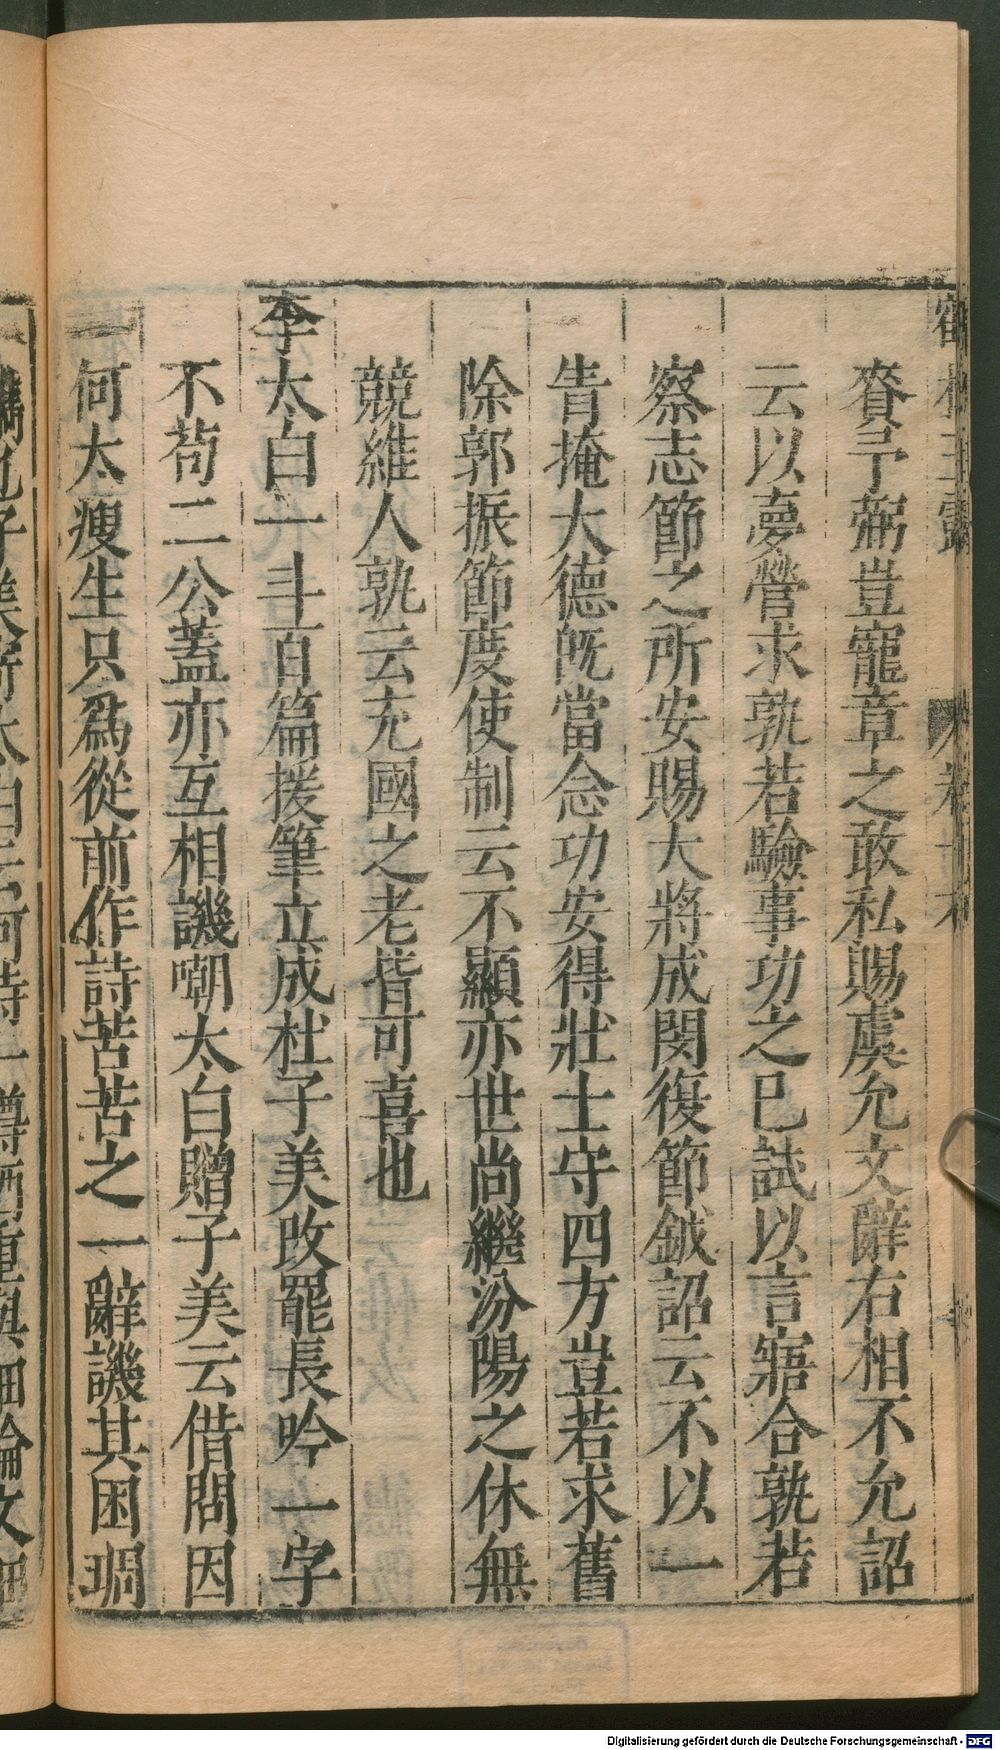 賚予弼豈寵章之敢私賜虞允文辭右相不允詔
云以夢營求孰若驗事功之已試以言寤合孰若
察志節之所安賜大將成閔復節鉞詔云不以一
眚掩大德旣當念功安得壯士守四方豈若求舊
除郭振節度使制云不顯亦世尚繼汾陽之休無
競維人孰云充國之老皆可喜也
李太白一斗百篇援筆立成杜子美改罷長吟一字
不茍二公蓋亦互相譏嘲太白贈子美云借問因
何太瘦生只爲從前作詩苦苦之一辭譏其困琱
鐫也子美寄太白云何時一樽酒重與細論文細
Digitalisierung gefördert durch die Deutsche Forschungsgemeinschaft - DFG